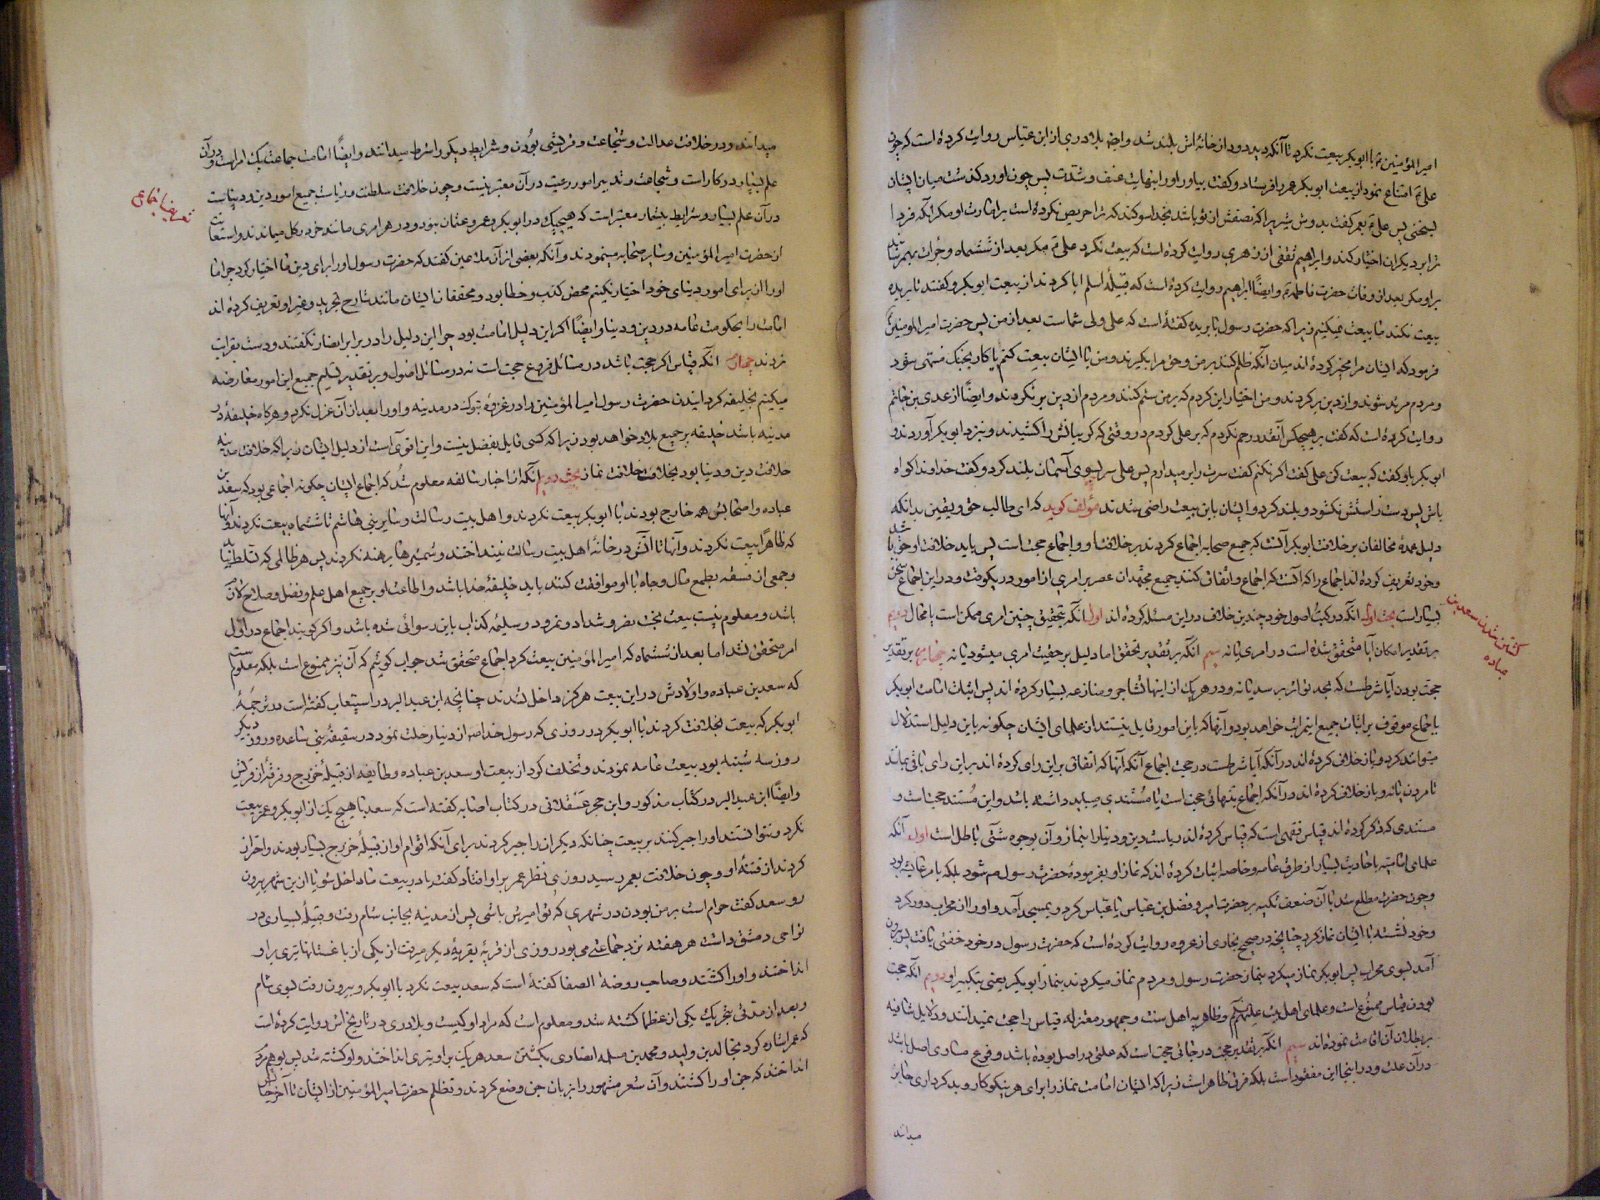 امیرالمؤمنین با ابوبکر بیعت نکرد تا آنکه دید دود از خانه‌اش بلند شد و ایضا بلاذری از ابن عباس روایت کرده است که چون
علی ع امتناع نمود از بیعت ابوبکر عمر را فرستاد و گفت بیاور او را بنهایت عنف و شدت پس چون آورد گذشت میان ایشان
سخنی پس علی ع بعمر گفت بدوش شیر را که نصفش از تو باشد بخدا سوگند که ترا حریص نکرده است بر امارت او مگر آنکه فردا
ترا بر دیگران اختیار کند و ابراهیم ثقفی از زهری روایت کرده است که بیعت نکرد علی ع مگر بعد از ششماه و جرأت بهم نرسانیدند
بر او مگر بعد از وفات حضرت فاطمه و ایضا ابراهیم روایت کرده است که قبیله اسلم ابا کردند از بیعت ابوبکر و گفتند تا بریده
بیعت نکند ما بیعت نمیکنیم زیرا که حضرت رسول با بریده گفته است که علی ولی شماست بعد از من پس حضرت امیرالمؤمنین
فرمود که ایشان مرا مخیر کرده‌اند میان آنکه ظلم کنند بر من و حق مرا بگیرند و من با ایشان بیعت کنم یا کار بجنگ منتهی شود
و مردم مرتد شوند و از دین برگردند و من اختیار این کردم که بر من ستم کنند و مردم از دین بر نگردند و ایضا از عدی بن حاتم
روایت کرده است که گفت بر هیچکس آنقدر رحم نکردم که بر علی کردم در وقتی که گریبانش را کشیدند و بنزد ابوبکر آوردند و
ابوبکر باو گفت که بیعت کن علی گفت اگر نکنم گفت سرت را بر میدارم پس علی سر بسوی آسمان بلند کرد و گفت خداوندا گواه
باش پس دست راستش نگشود و بلند کرد و ایشان باین بیعت راضی شدند مؤلف گوید که ای طالب حق و یقین بدانکه
دلیل عمده مخالفان بر خلافت ابوبکر آنست که جمیع صحابه اجماع کردند بر خلافت او و اجماع حجت است پس باید خلافت او حق باشد
و خود تعریف کرده‌اند اجماع را که آنست که اجماع و اتفاق کنند جمیع مجتهدان عصر بر امری از امور در یکوقت و در این اجماع سخن
بسیار است بحث اول آنکه در کتب اصول خود چندین خلاف در این مسئله کرده‌اند اول آنکه بتحقق چنین امری ممکن است یا محال دویم
بر تقدیر امکان آیا متحقق شده است در امری یا نه سیم آنکه بر تقدیر تحقق اما دلیل بر حقیت امری میشود یا نه چهارم بر تقدیر
حجت بودن آیا شرطست که بحد تواتر برسد یا نه و در هر یک از اینها تشاجر و منازعه بسیار کرده‌اند پس اثبات امامت ابوبکر
باجماع موقوف بر اثبات جمیع این مراتب خواهد بود و آنها که باین امور قایل نیستند از علمای ایشان چگونه باین دلیل استدلال
میتوانند کرد و باز خلاف کرده‌اند در آنکه آیا شرطست در حجیت اجماع آنکه آنها که اتفاق بر این رأی کرده‌اند بر این رأی باقی بمانند
تا مردن یا نه و باز خلاف کرده‌اند در آنکه اجماع بتنهائی حجت است یا مستندی میباید داشته باشد و این مستند حجت است و
مستندی که ذکر کرده‌اند قیاس فقهی است که قیاس کرده‌اند ریاست دین و دنیا را بنماز و آن بوجوه شتی باطل است اول آنکه
علمای امامیه باحادیث بسیار از طرق عامه و خاصه اثبات کرده‌اند که نماز او بفرموده حضرت رسول نبود بلکه بامر عایشه بود
و چون حضرت مطلع شد با آن ضعف تکیه بر حضرت امیر و فضل بن عباس یا عباس کرد و بمسجد آمد و او را از محراب دور کرد
و خود نشسته با ایشان نماز کرد چنانچه در صحیح بخاری از عروه روایت کرده است که حضرت رسول در خود خفتی یافت پس بیرون
آمد بسوی محراب پس ابوبکر نماز میکرد بنماز حضرت رسول و مردم نماز میکردند بنماز ابوبکر یعنی بتکبیر او دویم آنکه حجت
بودن قیاس ممنوع است و علمای اهل بیت علیهم السلام و ظاهریه اهل سنت و جمهور معتزله قیاس را حجت نمیدانند و دلایل شافیه
بر بطلان آن اقامت نموده‌اند سیم آنکه بر تقدیر حجیت در جائی حجت است که علتی در اصل بوده باشد و فرع مساوی اصل باشد
در آن علت و در اینجا این مفقود است بلکه فرق ظاهر است زیرا که ایشان امامت نماز را برای هر نیکوکار و بدکرداری جایز
میدانند
کشتن شدن سعد بن
عباده
میدانند و در خلافت عدالت و شجاعت و قرشی بودن و شرایط دیگر را شرط میدانند و ایضا امامت جماعت یک امر است و در آن
علم بسیار در کار است و شجاعت و تدبیر امور رعیت در آن معتبر نیست و چون خلافت سلطنت و ریاست جمیع امور دین و دنیاست
در آن علم بسیار و شرایط بیشمار معتبر است که هیچیک در ابوبکر و عمر و عثمان نبود و در هر امری مانند خر در گل میماندند و استعانت
از حضرت امیرالمؤمنین و سایر صحابه مینمودند و آنکه بعضی از آن ملاعین گفتند که حضرت رسول او را برای دین ما اختیار کرد چرا ما
او را از برای امور دنیای خود اختیار نکنیم محض کذب و خطا بود و محققان ایشان مانند شارح تجرید و غیر او تعریف کرده‌اند
امامت را بحکومت عامه در دین و دنیا و ایضا اگر این دلیل امامت بود چرا این دلیل را در برابر انصار نگفتند و دست بقرابت
زدند چهارم آنکه قیاس اگر حجت باشد در مسائل فروع حجت است نه در مسائل اصول و بر تقدیر تسلیم جمیع این امور معارضه
میکنیم بخلیفه گردانیدن حضرت رسول امیرالمؤمنین را در غزوه تبوک در مدینه و او را بعد از آن عزل نکرد و هرگاه خلیفه در
مدینه باشد خلیفه بر جمیع بلاد خواهد بود زیرا که کسی قایل بفصل نیست و این اقوی است از دلیل ایشان زیرا که خلافت مدینه
خلافت دین و دنیا بود بخلاف خلافت نماز بحث دویم آنکه از اخبار سالفه معلوم شد که اجماع ایشان چگونه اجماعی بود که سعد بن
عباده و اصحابش همه خارج بودند با ابوبکر بیعت نکردند و اهل بیت رسالت و سایر بنی هاشم تا ششماه بیعت نکردند و آنها
که ظاهرا بیعت نکردند و آنها تا آتش در خانه اهل بیت رسالت نینداختند و شمشیرها برهنه نکردند پس هر ظالمی که تسلط یابد
و جمعی از سفها بطمع مال و جاه با او موافقت کنند باید خلیفه خدا باشد و اطاعت او بر جمیع اهل علم و فضل و صلاح لازم
باشد و معلوم نیست بیعت بخت نصر و شداد و نمرود و مسیلمه کذاب باین رسوائی شده باشد و اگر گویند اجماع در اول
امر متحقق نشد اما بعد از ششماه که امیرالمؤمنین بیعت کرد اجماع متحقق شد جواب گوئیم که آن نیز ممنوع است بلکه معلوم است
که سعد بن عباده و اولادش در این بیعت هرگز داخل نشدند چنانچه ابن عبدالبر در استیعاب گفته است در ترجمه
ابوبکر که بیعت بخلافت کردند با ابوبکر در روزی که رسول خدا ص از دنیا رحلت نمود در سقیفه بنی ساعده و روز دیگر
روز سه شنبه بود بیعت عامه نمودند و تخلف کرد از بیعت او سعد بن عباده و طایفه از قبیله خزرج و فرقه از قریش
و ایضا ابن عبدالبر در کتاب مذکور و ابن حجر عسقلانی در کتاب اصابه گفته است که سعد با هیچ یک از ابوبکر و عمر بیعت
نکرد و نتوانستند او را جبر کنند بر بیعت چنانکه دیگران را جبر کردند برای آنکه اقوام او از قبیله خزرج بسیار بودند و احتراز
کردند از فتنه او و چون خلافت بعمر رسید روزی نظر عمر بر او افتاد گفت یا در بیعت ما داخل شو یا از این شهر بیرون
رو سعد گفت حرام است بر من بودن در شهری که تو امیرش باشی پس از مدینه بجانب شام رفت و قبیله بسیاری در
نواحی دمشق داشت هر هفته نزد جماعتی می‌بود روزی از قریه بقریه دیگر میرفت از یکی از باغستانها تیری بر او
انداختند و او را کشتند و صاحب روضة الصفا گفته است که سعد بیعت نکرد با ابوبکر و بیرون رفت بسوی شام
و بعد از مدتی بتحریک یکی از عظما کشته شد و معلوم است که مراد او کیست و بلاذری در تاریخش روایت کرده است
که عمر اشاره کرد بخالد بن ولید و محمد بن مسلمه انصاری بکشتن سعد هر یک بر او تیری انداختند و او کشته شد پس بوهم مردم
انداختند که جن او را کشتند و آن شعر مشهور را بزبان جن وضع کردند و تظلم حضرت امیرالمؤمنین از ایشان تا آخر حیات